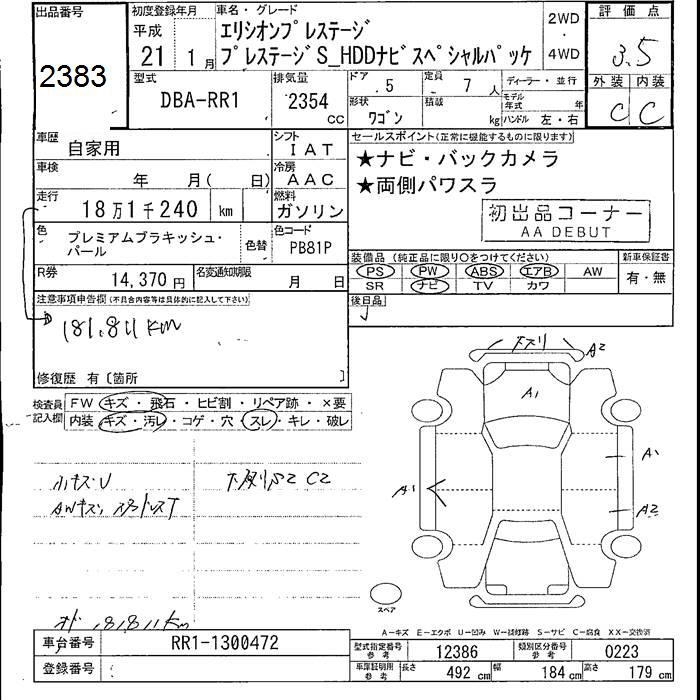 出品番号
2383
初度登録年月
平成
21 1月
車名・グレード
エリシオンプレステージ
プレステージS_HDDナビスペシャルパッケ
2WD
4WD
評価点
3.5
外装 内装
C C
型式
DBA-RR1
排気量
2354
CC
ドア
5
定員
7 人
ディーラー・並行
形状
ワゴン
積載
kg
モデル年式 年
ハンドル 左・右
車歴
自家用
シフト
IAT
車検
年 月( 日)
冷房
AAC
走行
18万1千240 km
燃料
ガソリン
色
プレミアムブラキッシュ・
パール
色替
色コード
PB81P
R券
14,370円
名変通知期限
月 日
セールスポイント(正常に機能するものに限ります)
★ナビ・バックカメラ
★両側パワスラ
初出品コーナー
AA DEBUT
装備品 (純正品に限り○をつけてください)
PS PW ABS エアB AW
SR ナビ TV カワ
新車保証書
有・無
注意事項申告欄(不具合内容等は具体的に記入して下さい)
181,811km
後日品
修復歴 有〔箇所 〕
検査員
記入欄
FW キズ・飛石・ヒビ割・リペア跡・×要
内装 キズ・汚レ・コゲ・穴・スレ・キレ・破レ
小キズU
AWキズ
C2
181,811km
下スリ
A2
A1
A1
A1
A2
スペア
A-キズ E-エクボ U-凹み W-補修跡 S-サビ C-腐食 XX-交換済
車台番号
RR1-1300472
登録番号
型式指定番号
参考
12386
類別区分番号
参考
0223
車庫証明用
参考
長さ 492 cm 幅 184 cm 高さ 179 cm